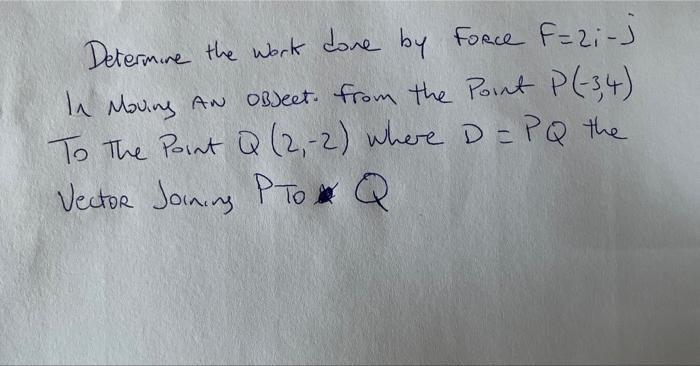 Determine the work done by Force F=2i-j
In Moving AN OBJect. from the Point P(-3,4)
To The Point Q (2,-2) where D = PQ the
Vector Joining P To Q